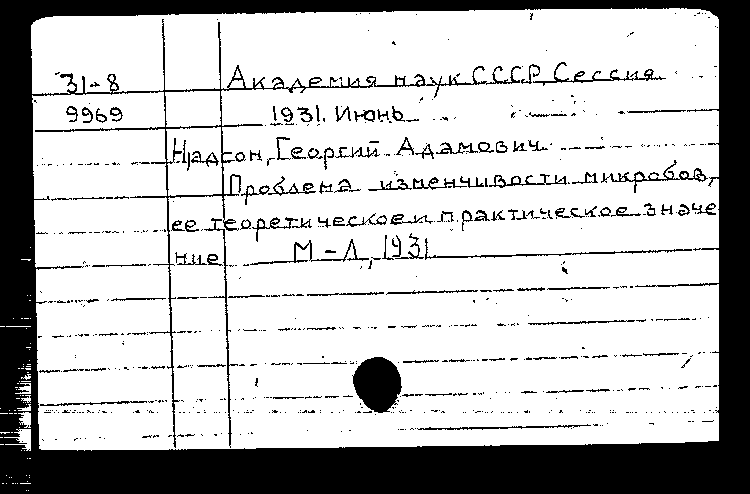 31-8 Академия наук СССР, Сессия
9969 1931. Июнь
Надсон, Георгий Адамович
Проблема изменчивости микробов,
ее теоретическое и практическое значе
ние М-Л, 1931